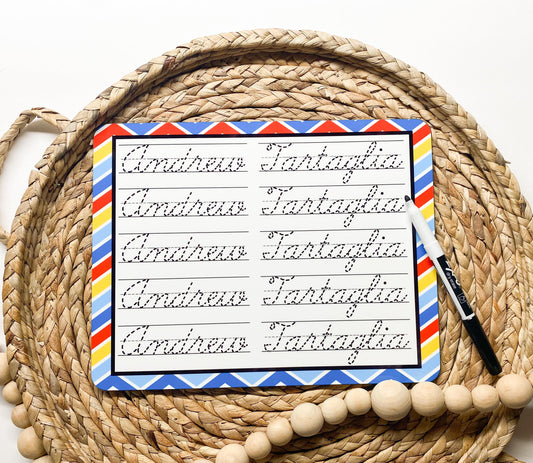 Andrew Tartaglia
Andrew Tartaglia
Andrew Tartaglia
Andrew Tartaglia
Andrew Tartaglia